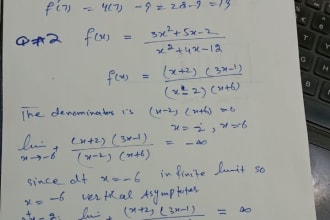 f'(7) = 4(7) - 9 = 28 - 9 = 19
Q#2 f(x) = 3x²+5x-2 / x²+4x-12
f(x) = (x+2) (3x-1) / (x-2) (x+6)
The denominator is (x-2) (x+6) = 0
x = 2, x = -6
lim x→-6⁺ (x+2) (3x-1) / (x-2) (x+6) = -∞
since at x = -6 infinite limit so
x = -6 vertical Asymptotes
x = 2 lim (x+2) (3x-1) / (x-2) (x+6) = ∞